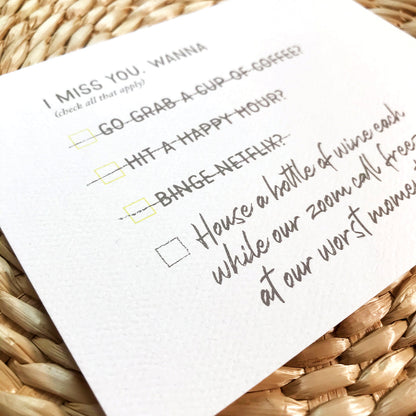 I MISS YOU. WANNA
(check all that apply)
GO GRAB A CUP OF COFFEE?
HIT A HAPPY HOUR?
BINGE NETFLIX?
House a bottle of wine each
while our zoom call free
at our worst